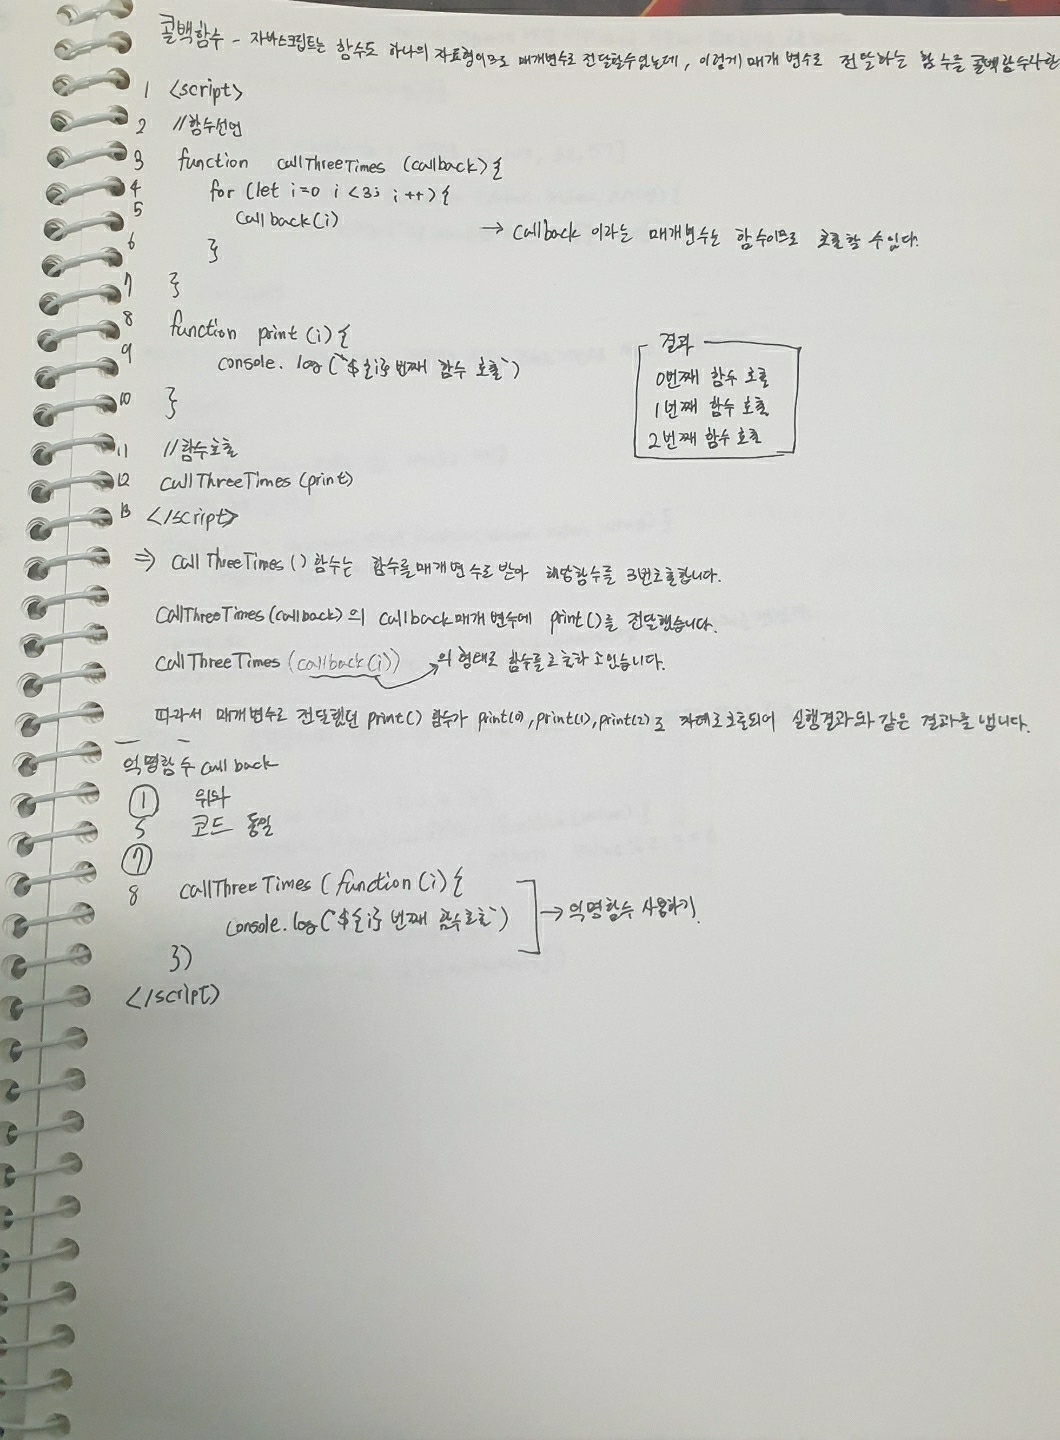 콜백함수 - 자바스크립트는 함수도 하나의 자료형이므로 매개변수로 전달할수있는데, 이렇게 매개 변수로 전달하는 함수를 콜백함수라한
1 <script>
2 //함수선언
3 function callThreeTimes (callback){
4 for (let i=0 i <3; i++){
5 callback(i) → callback 이라는 매개변수는 함수이므로 호출할 수있다.
6 }
7 }
8 function print (i){
9 console. log(`${i}번째 함수 호출`)
10 }
결과
0번째 함수 호출
1번째 함수 호출
2번째 함수 호출
11 //함수호출
12 callThreeTimes(print)
13 </script>
⇒ callThreeTimes()함수는 함수를매개변수로받아 해당함수를 3번호출합니다.
callThreeTimes(callback)의 callback매개변수에 print()를 전달했습니다.
callThreeTimes(callback(i)) 의 형태로 함수를호출하고있습니다.
따라서 매개변수로 전달했던 print() 함수가 print(0), print(1), print(2)로 차례로호출되어 실행결과와같은 결과를 냅니다.
익명함수 callback
① 위와
5 코드 동일
⑦
8 callThreeTimes (function(i){
console.log(`${i}번째 함수호출`) → 익명함수 사용하기.
})
</script>